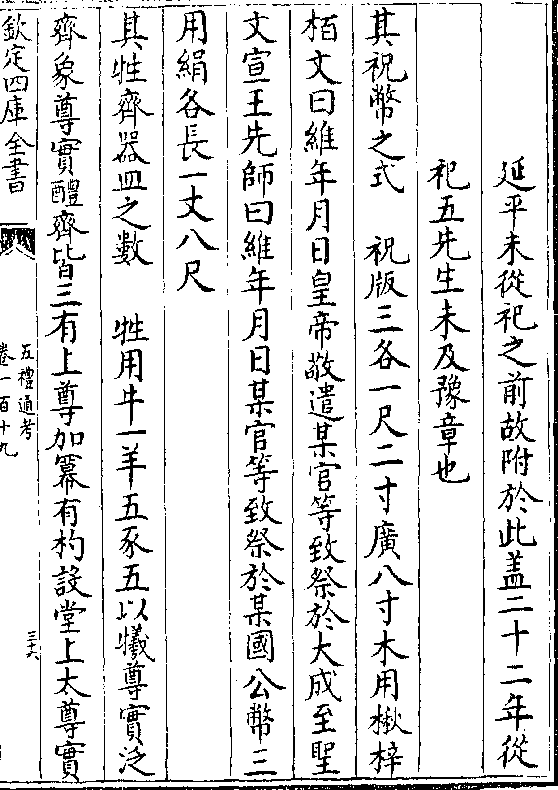 延平未從祀之前故附於此盖二十二年從
祀五先生未及豫章也
其祝幣之式　祝版三各一尺二寸廣八寸木用楸梓
栢文曰維年月日皇帝敬遣某官等致祭於大成至聖
文宣王先師曰維年月日某官等致祭於某國公幣三
用絹各長一丈八尺
其牲齊器皿之數　牲用牛一羊五豕五以犧尊實泛
齊象尊實醴齊皆三有上尊加冪有杓設堂上太尊實
欽定四庫全書
五禮通考
卷一百十九
三六